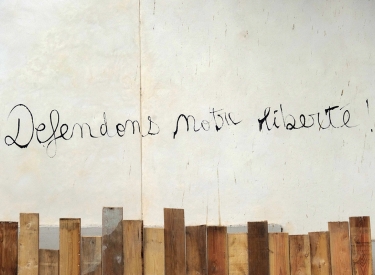 Defendons notre liberté !